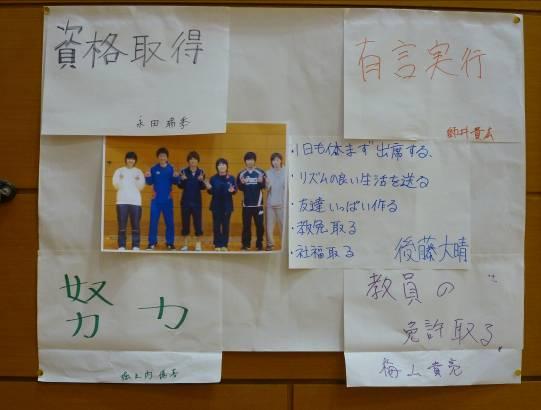 資格取得
永田
有言実行
・1日も休まず出席する、
・リズムの良い生活を送る
・友達いっぱい作る
・教免取る
・社福取る
後藤大晴
努力
教員の
免許取る
梅山貴亮